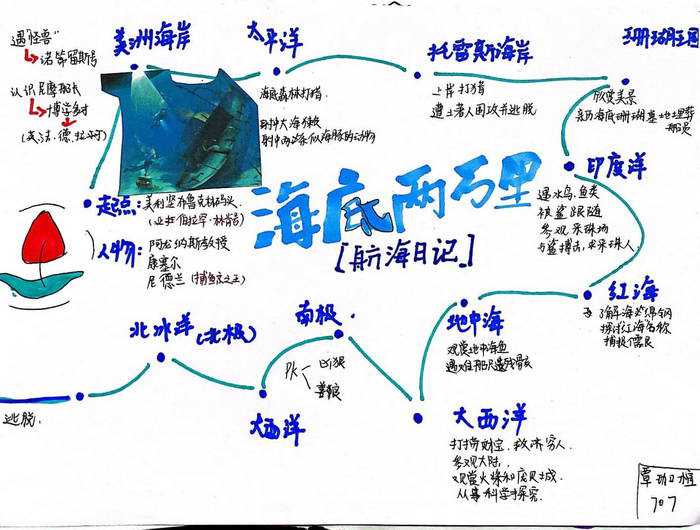 遇"怪兽"
诺第留斯号
认识尼摩船长
博学多才
(英、法、德、拉、列)
美洲海岸
太平洋
海底森林打猎
射中大海
射中两次似海豚的动物
托雷斯海岸
上岸打猎
遭土著人围攻并逃脱
珊瑚王国
欣赏美景
来海底珊瑚墓地埋葬
船员
印度洋
遇水鸟.鱼类
被鲨跟随
参观采珠场
与鲨搏击,采珠人.
起点:美利坚布鲁克林码头.
(亚伯拉罕·林肯号)
人物:阿龙纳斯教授
康塞尔
尼德兰(捕鲸之王)
海底两万里
[航海日记]
红海
了解海
探讨红海名称
捕捉儒艮
地中海
观赏地中海鱼
遇难船只遗残骸
南极.
PK
凶狠
善良
北冰洋(北极)
大西洋
逃脱.
大西洋
打捞财宝.救济穷人.
参观大陆.
观赏火焰和庞贝城.
从事科学探究.
覃
707